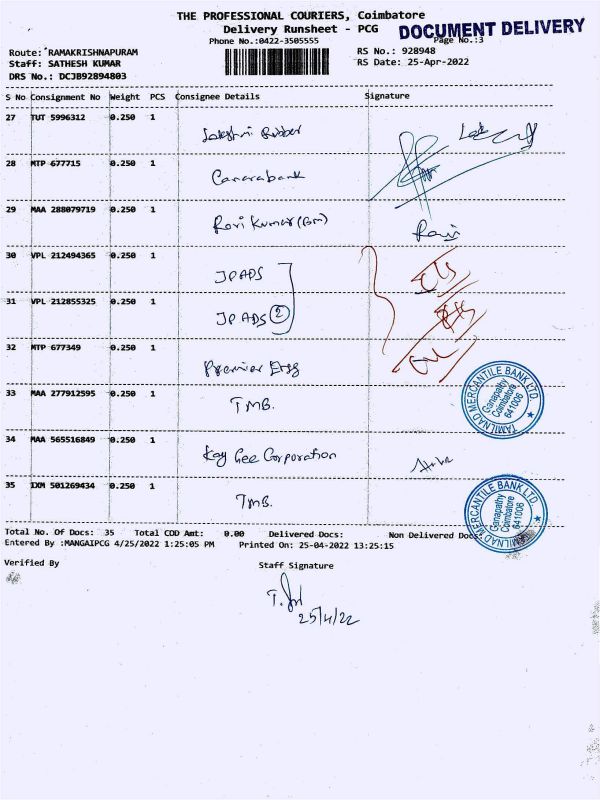 THE PROFESSIONAL COURIERS, Coimbatore
Delivery Runsheet - PCG
DOCUMENT DELIVERY
Phone No.:0422-3505555
Page No.:3
Route: RAMAKRISHNAPURAM
RS No.: 928948
Staff: SATHESH KUMAR
RS Date: 25-Apr-2022
DRS No.: DCJB92894803
S No Consignment No Weight PCS Consignee Details Signature
27 TUT 5996312 0.250 1 Lakshmi Rubber
28 MTP 677715 0.250 1 Canarabank
29 MAA 288079719 0.250 1 Ravi Kumar (Gm) Ravi
30 VPL 212494365 0.250 1 JP ADS
31 VPL 212855325 0.250 1 JP ADS 2
32 MTP 677349 0.250 1 Premier Engg
33 MAA 277912595 0.250 1 TMB.
TAMILNAD MERCANTILE BANK LTD.
Ganapathy
Coimbatore
641006
34 MAA 565516849 0.250 1 Kay Gee Corporation
35 IXM 501269434 0.250 1 TMB.
TAMILNAD MERCANTILE BANK LTD.
Ganapathy
Coimbatore
641006
Total No. Of Docs: 35 Total COD Amt: 0.00 Delivered Docs: Non Delivered Docs
Entered By :MANGAIPCG 4/25/2022 1:25:05 PM Printed On: 25-04-2022 13:25:15
Verified By
Staff Signature
25/4/22